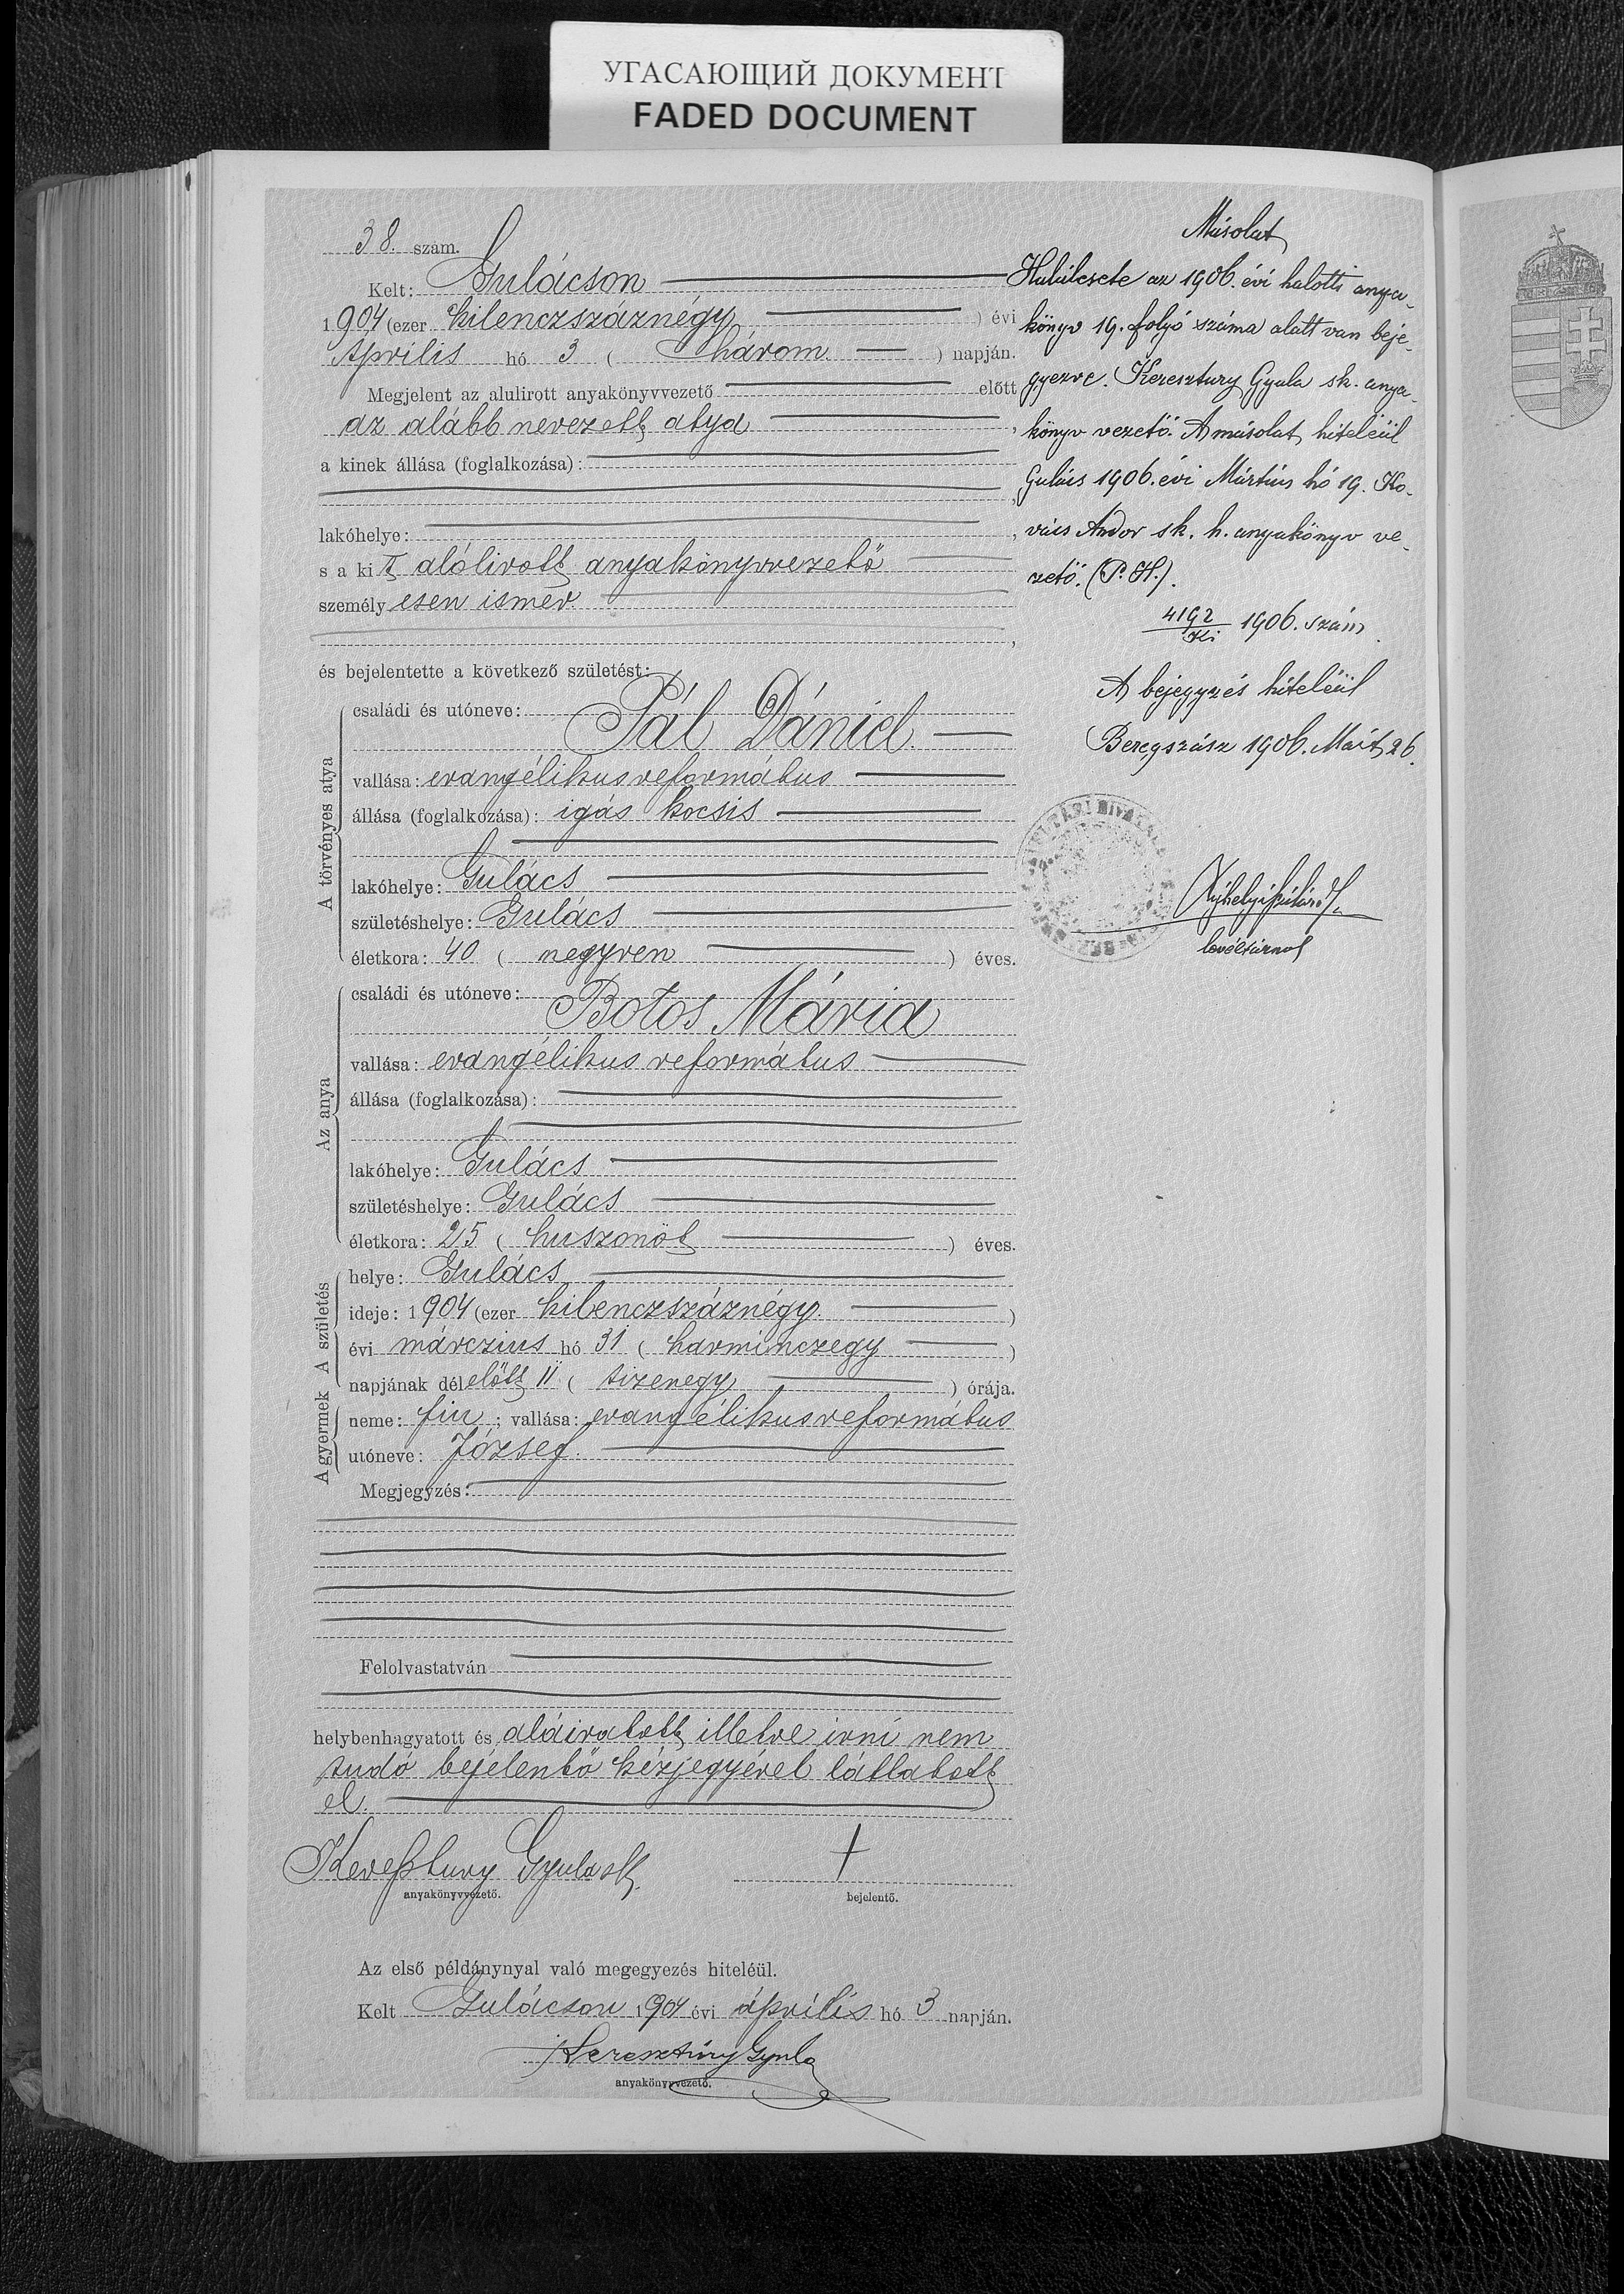 УГАСАЮЩИЙ ДОКУМЕНТ
FADED DOCUMENT
38. szám.
Kelt: Gulácson
1904 (ezer kilenczszáznégy) évi
Április hó 3 (három) napján.
Megjelent az alulirott anyakönyvvezető előtt
az alább nevezett atya,
a kinek állása (foglalkozása):
,
lakóhelye: ,
s a kit alólirott anyakönyvvezető
személyesen ismer
,
és bejelentette a következő születést:
A törvényes atya
családi és utóneve:
Pál Dániel
vallása: evangélikus református
állása (foglalkozása): igás kocsis
lakóhelye: Gulács
születéshelye: Gulács
életkora: 40 (negyven) éves.
Az anya
családi és utóneve:
Botos Mária
vallása: evangélikus református
állása (foglalkozása):
lakóhelye: Gulács
születéshelye: Gulács
életkora: 25 (huszonöt) éves.
A születés
helye: Gulács
ideje: 1904 (ezer kilenczszáznégy)
évi márczius hó 31 (harminczegy)
napjának délelőtt 11 (tizenegy) órája.
A gyermek
neme: fiu; vallása: evangélikus református
utóneve: József.
Megjegyzés:
Felolvastatván
helybenhagyatott és aláiratott illetve irni nem
tudó bejelentő kézjegyével láttatott
el.
Kereßtury Gyula sk.
+
anyakönyvvezető.
bejelentő.
Az első példánynyal való megegyezés hiteléül.
Kelt Gulácson 1904 évi április hó 3 napján.
Keresztúry Gyula
anyakönyvvezető.
Másolat
Halálesete az 1906. évi halotti anya-
könyv 19. folyó száma alatt van beje-
gyezve. Keresztury Gyula sk. anya-
könyv vezető. A másolat hiteléül
Gulács 1906. évi Mártius hó 19. Ko-
vács Andor sk. h. anyakönyv ve-
zető. (P. H.).
4192/Ki 1906. szám.
A bejegyzés hiteléül
Beregszász 1906. Márt 26.
levéltárnok